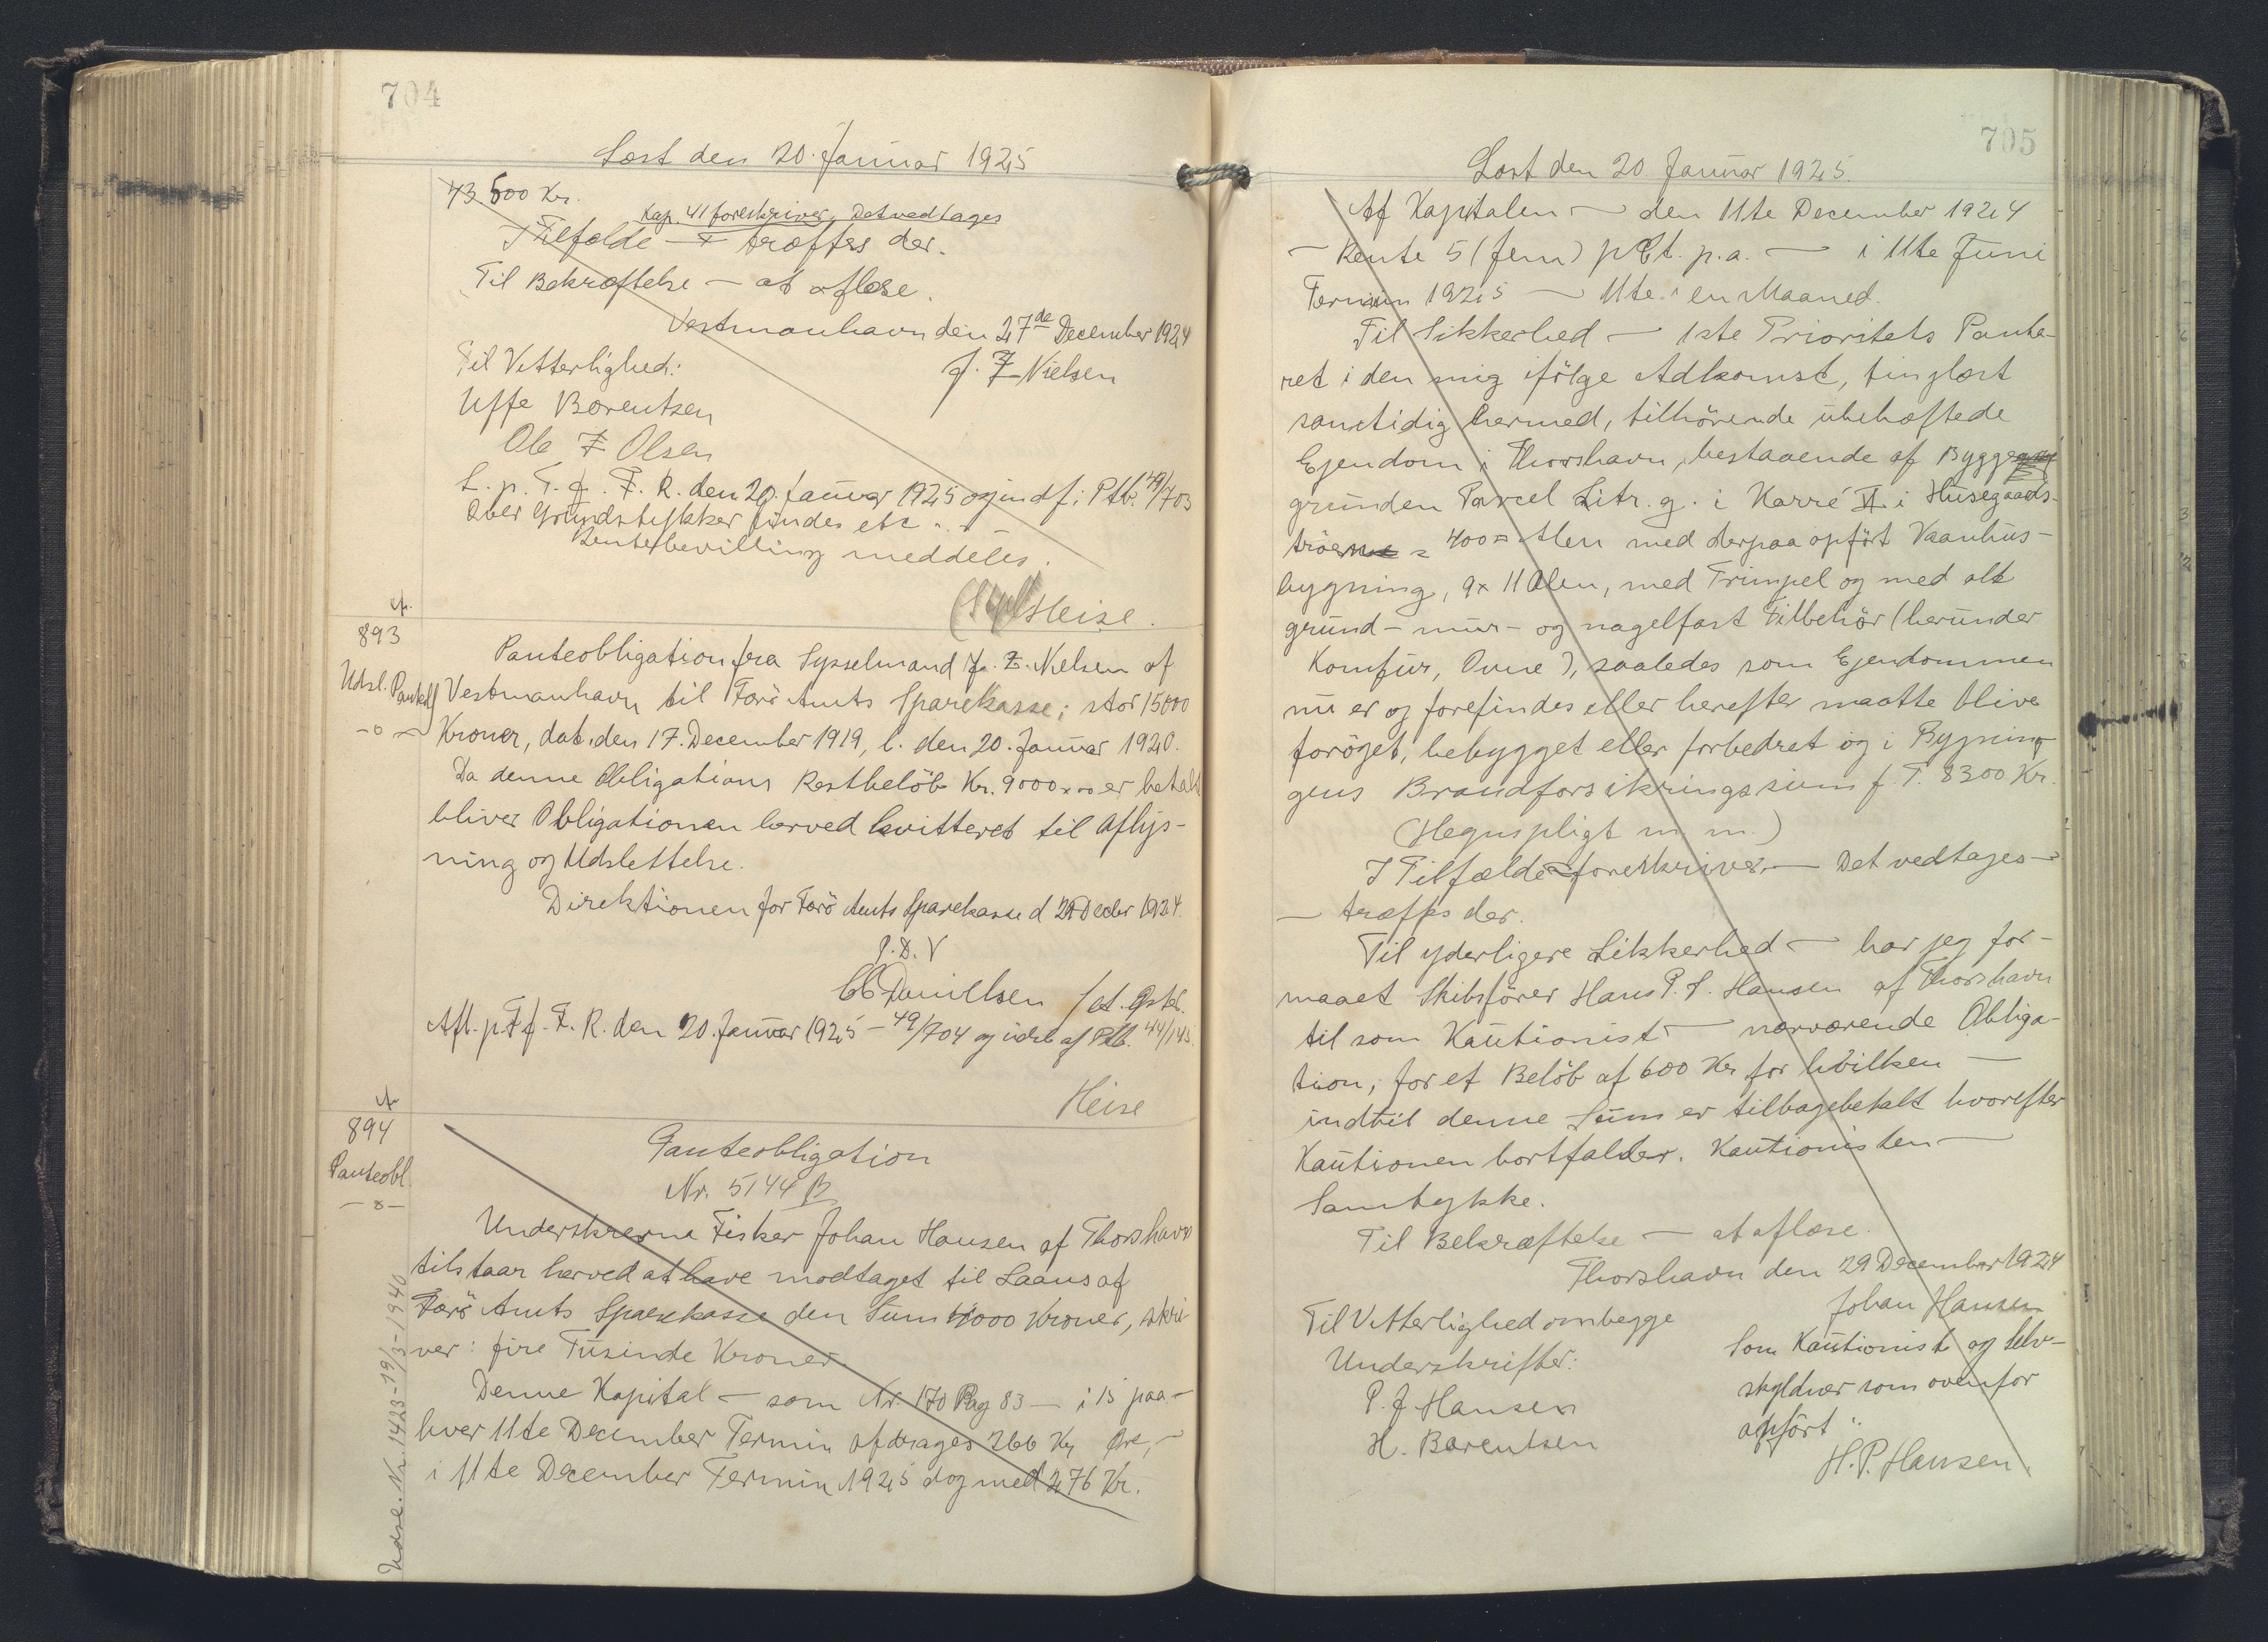 704
Læst den 20. Januar 1925
43500 Kr.
Kap. 41 foreskriver, Det vedtages
I Tilfælde — træffes der.
Til Bekræftelse — at aflæse.
Vestmanhavn den 27de December 1924
Til Vitterlighed: J. F Nielsen
Uffe Børentsen
Ole F Olsen
L. p. T. f. F. R. den 20. Januar 1925 og indf. i Ptb. 49/703
Over Grundstykker findes etc
Rentebevilling meddeles.
Heise.
893
Panteobligation fra Sysselmand J. F. Nielsen af
Udsl. Panteobl
Vestmanhavn til Færö Amts Sparekasse; stor 15000
Kroner, dat. den 17. December 1919, l. den 20. Januar 1920.
Da denne Obligations Restbelöb Kr. 9000 x oo er betalt
bliver Obligationen herved kvitteret til Aflys-
ning og Udslettelse.
Direktionen for Færö Amts Sparekasse d 27 Decbr 1924.
P.D.V
CC Danielsen
Afl. p. T f. F. R. den 20. Januar 1925 - 49/704 og udsl af Ptb. 44/145.
Heise
894
Panteobl.
Panteobligation
Nr. 5144 B
Underskrevne Fisker Johan Hansen af Thorshavn
tilstaar herved at have modtaget til Laans af
Færö Amts Sparekasse den Sum 4000 Kroner, skri
ver: fire Tusinde Kroner.
Denne Kapital — som Nr. 170 Pag 83 — i 15 paa-
hver 11te December Termin afdrages 266 Kr Øre, -
i 11te December Termin 1925 dog med 276 Kr.
Udsl. Nr. 1423-19/3-1940
705
Læst den 20 Januar 1925.
Af Kapitalen — den 11te December 1924
— Rente 5 (fem) pCt. p.a. — i 11te Juni
Termin 1925 — 11te i en Maaned.
Til Sikkerhed — 1ste Prioritets Pante-
ret i den mig ifölge Adkomst, tinglæst
samtidig hermed, tilhörende ubehæftede
Ejendom i Thorshavn, bestaaende af Bygge
grunden Parcel Litr. g. i Karré VI i Husegaards-
tröerne = 400 □ Alen med derpaa opfört Vaanhus-
bygning, 9 x 11 Alen, med Trimpel og med alt
grund- mur- og nagelfast Tilbehör (herunder
Komfur, Ovne), saaledes som Ejendommen
nu er og forefindes eller herefter maatte blive
foröget, bebygget eller forbedret og i Bygnin
gens Brandforsikringssum f. T. 8300 Kr.
(Hegnspligt m. m.)
I Tilfælde foreskriver — Det vedtages —
— træffes der.
Til yderligere Sikkerhed — har jeg for-
maaet Skibsförer Hans P. S. Hansen af Thorshavn
til som Kautionist — nærværende Obliga-
tion, for et Belöb af 600 Kr for hvilken —
indtil denne Sum er tilbagebetalt hvorefter
Kautionen bortfalder. Kautionisten —
Samtykke.
Til Bekræftelse — at aflæse.
Thorshavn den 29 December 1924
Til Vitterlighed om begge Johan Hansen
Underskrifter: Som Kautionist og Selv-
P. J. Hansen skyldner som ovenfor
H. Børentsen anfört
H.P. Hansen.